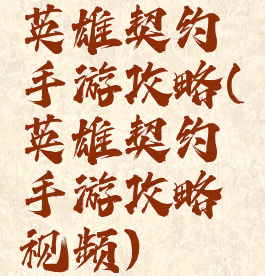 英雄契约
手游攻略(
英雄契约
手游攻略
视频)